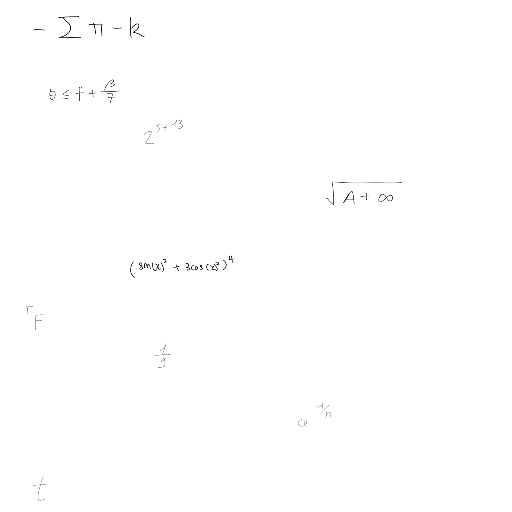 - Σ π - k
5 ≤ f + β/7
2^{5+13}
√(A + ∞)
(sin(x)² + 3cos(x)²)⁴
ʳF
1/9
a^{1/n}
t